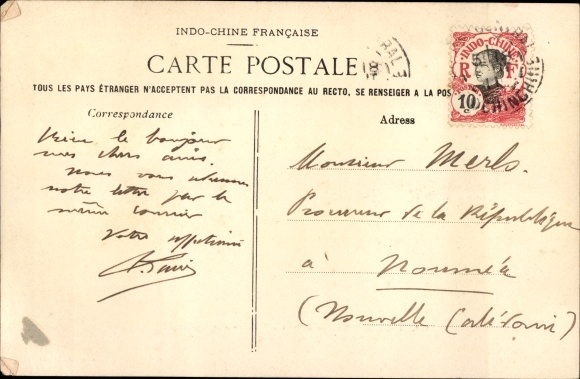 INDO-CHINE FRANÇAISE
CARTE POSTALE
TOUS LES PAYS ÉTRANGER N'ACCEPTENT PAS LA CORRESPONDANCE AU RECTO, SE RENSEIGER A LA POS
INDO-CHINE
R F
10 c
Correspondance
Adress
le bonjour
mes chers amis.
Nous vous
notre lettre par le
même courrier
Votre
Monsieur Merls.
Procureur de la République
à Nouméa
(Nouvelle Calédonie)